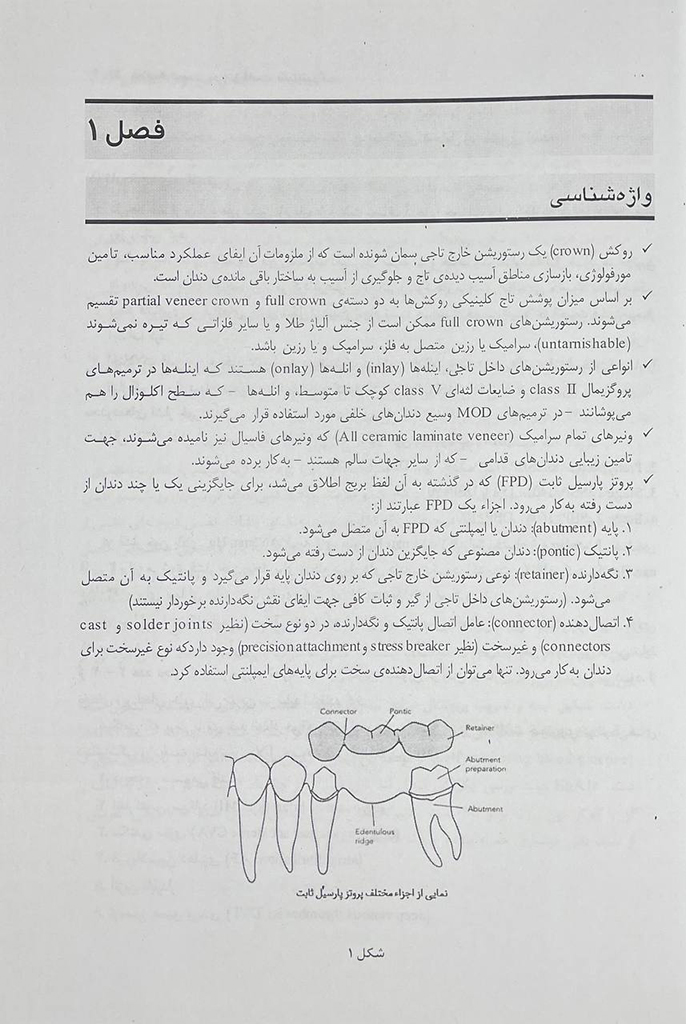 فصل ۱
واژه‌شناسی
✓ روکش (crown) یک رستوریشن خارج تاجی سمان شونده است که از ملزومات آن ایفای عملکرد مناسب، تامین
مورفولوژی، بازسازی مناطق آسیب دیده‌ی تاج و جلوگیری از آسیب به ساختار باقی مانده‌ی دندان است.
✓ بر اساس میزان پوشش تاج کلینیکی روکش‌ها به دو دسته‌ی full crown و partial veneer crown تقسیم
می‌شوند. رستوریشن‌های full crown ممکن است از جنس آلیاژ طلا و یا سایر فلزاتی که تیره نمی‌شوند
(untarnishable)، سرامیک یا رزین متصل به فلز، سرامیک و یا رزین باشد.
✓ انواعی از رستوریشن‌های داخل تاجی، اینله‌ها (inlay) و انله‌ها (onlay) هستند که اینله‌ها در ترمیم‌های
پروگزیمال class II و ضایعات لثه‌ای class V کوچک تا متوسط، و انله‌ها - که سطح اکلوزال را هم
می‌پوشانند - در ترمیم‌های MOD وسیع دندان‌های خلفی مورد استفاده قرار می‌گیرند.
✓ ونیرهای تمام سرامیک (All ceramic laminate veneer) که ونیرهای فاسیال نیز نامیده می‌شوند، جهت
تامین زیبایی دندان‌های قدامی - که از سایر جهات سالم هستند - به‌کار برده می‌شوند.
✓ پروتز پارسیل ثابت (FPD) که در گذشته به آن لفظ بریج اطلاق می‌شد، برای جایگزینی یک یا چند دندان از
دست رفته به‌کار می‌رود. اجزاء یک FPD عبارتند از:
۱. پایه (abutment): دندان یا ایمپلنتی که FPD به آن متصل می‌شود.
۲. پانتیک (pontic): دندان مصنوعی که جایگزین دندان از دست رفته می‌شود.
۳. نگه‌دارنده (retainer): نوعی رستوریشن خارج تاجی که بر روی دندان پایه قرار می‌گیرد و پانتیک به آن متصل
می‌شود. (رستوریشن‌های داخل تاجی از گیر و ثبات کافی جهت ایفای نقش نگه‌دارنده برخوردار نیستند)
۴. اتصال‌دهنده (connector): عامل اتصال پانتیک و نگه‌دارنده، در دو نوع سخت (نظیر solder joints و cast
connectors) و غیرسخت (نظیر stress breaker و precision attachment) وجود دارد که نوع غیرسخت برای
دندان به‌کار می‌رود. تنها می‌توان از اتصال‌دهنده‌ی سخت برای پایه‌های ایمپلنتی استفاده کرد.
Connector
Pontic
Retainer
Abutment
preparation
Abutment
Edentulous
ridge
نمایی از اجزاء مختلف پروتز پارسیل ثابت
شکل ۱